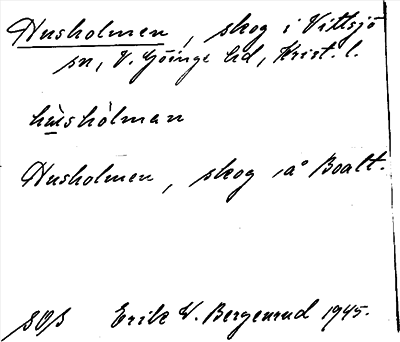 Husholmen, skog i Vittsjö
sn, V. Göinge hd, Krist. l.
hùshòlman
Husholmen, skog å Boalt.
SOS Erik W. Bergenrud 1945.